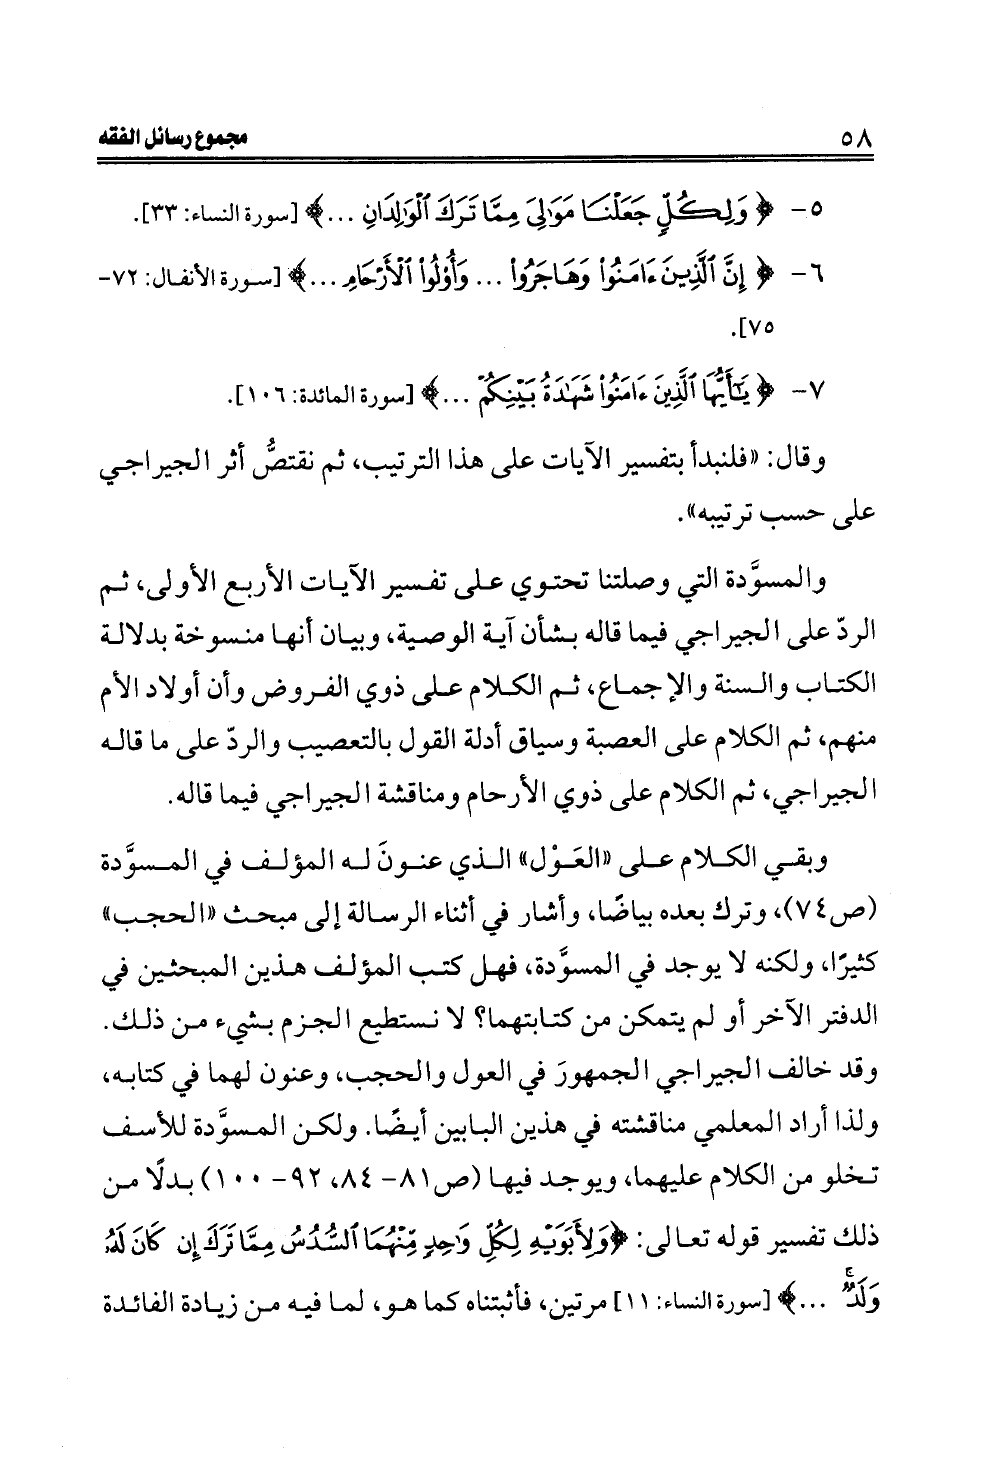 ٥٨ مجموع رسائل الفقه
٥- ﴿ وَلِكُلٍّ جَعَلْنَا مَوَالِيَ مِمَّا تَرَكَ ٱلْوَالِدَانِ ...﴾ [سورة النساء: ٣٣].
٦- ﴿ إِنَّ ٱلَّذِينَ ءَامَنُوا۟ وَهَاجَرُوا۟ ... وَأُو۟لُوا۟ ٱلْأَرْحَامِ ...﴾ [سورة الأنفال: ٧٢-
٧٥].
٧- ﴿ يَـٰٓأَيُّهَا ٱلَّذِينَ ءَامَنُوا۟ شَهَـٰدَةُ بَيْنِكُمْ ...﴾ [سورة المائدة: ١٠٦].
وقال: «فلنبدأ بتفسير الآيات على هذا الترتيب، ثم نقتصُّ أثر الجيراجي
على حسب ترتيبه».
والمسوَّدة التي وصلتنا تحتوي على تفسير الآيات الأربع الأولى، ثم
الردّ على الجيراجي فيما قاله بشأن آية الوصية، وبيان أنها منسوخة بدلالة
الكتاب والسنة والإجماع، ثم الكلام على ذوي الفروض وأن أولاد الأم
منهم، ثم الكلام على العصبة وسياق أدلة القول بالتعصيب والردّ على ما قاله
الجيراجي، ثم الكلام على ذوي الأرحام ومناقشة الجيراجي فيما قاله.
وبقي الكلام على «العَوْل» الذي عنونَ له المؤلف في المسوَّدة
(ص٧٤)، وترك بعده بياضًا، وأشار في أثناء الرسالة إلى مبحث «الحجب»
كثيرًا، ولكنه لا يوجد في المسوَّدة، فهل كتب المؤلف هذين المبحثين في
الدفتر الآخر أو لم يتمكن من كتابتهما؟ لا نستطيع الجزم بشيء من ذلك.
وقد خالف الجيراجي الجمهورَ في العول والحجب، وعنون لهما في كتابه،
ولذا أراد المعلمي مناقشته في هذين البابين أيضًا. ولكن المسوَّدة للأسف
تخلو من الكلام عليهما، ويوجد فيها (ص٨١- ٨٤، ٩٢- ١٠٠) بدلًا من
ذلك تفسير قوله تعالى: ﴿وَلِأَبَوَيْهِ لِكُلِّ وَاحِدٍ مِّنْهُمَا ٱلسُّدُسُ مِمَّا تَرَكَ إِن كَانَ لَهُۥ
وَلَدٌ ۚ ...﴾ [سورة النساء: ١١] مرتين، فأثبتناه كما هو، لما فيه من زيادة الفائدة